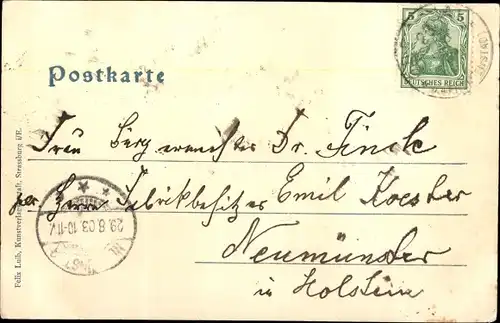 5 5
DEUTSCHES REICH
Postkarte
Frau Bürgermeister Dr. Finck
per. Herrn Fabrikbesitzer Emil Koester
Neumünster
in Holstein
29.8.03.10-11V.
Felix Luib, Kunstverlagsanstalt, Strassburg i/E.